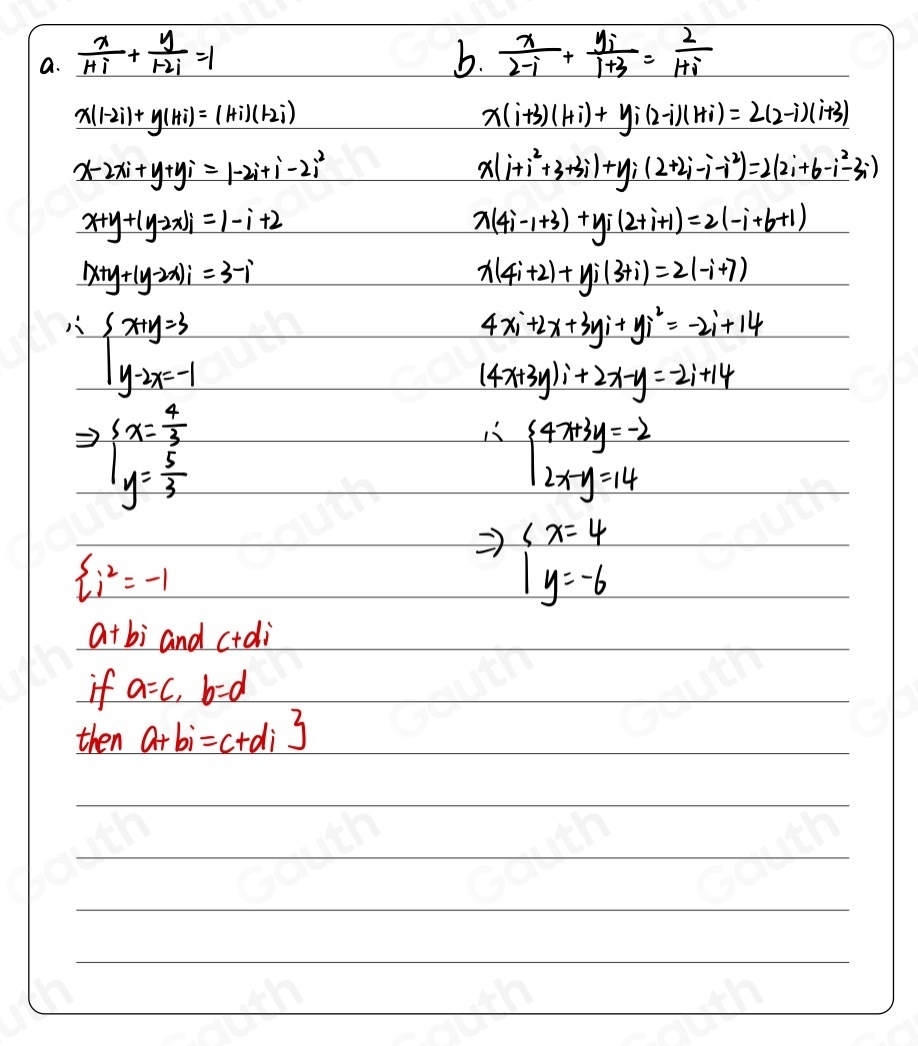 a. x/(1+i) + y/(1-2i) = 1
x(1-2i)+y(1+i)=(1+i)(1-2i)
x-2xi+y+yi=1-2i+i-2i²
x+y+(y-2x)i=1-i+2
x+y+(y-2x)i=3-i
∴ { x+y=3
y-2x=-1
⇒ { x=4/3
y=5/3
{i²=-1
a+bi and c+di
if a=c, b=d
then a+bi=c+di}
b. x/(2-i) + yi/(i+3) = 2/(1+i)
x(i+3)(1+i)+yi(2-i)(1+i)=2(2-i)(i+3)
x(i+i²+3+3i)+yi(2+2i-i-i²)=2(2i+6-i²-3i)
x(4i-1+3)+yi(2+i+1)=2(-i+6+1)
x(4i+2)+yi(3+i)=2(-i+7)
4xi+2x+3yi+yi²=-2i+14
(4x+3y)i+2x-y=-2i+14
∴ { 4x+3y=-2
2x-y=14
⇒ { x=4
y=-6
Gauth